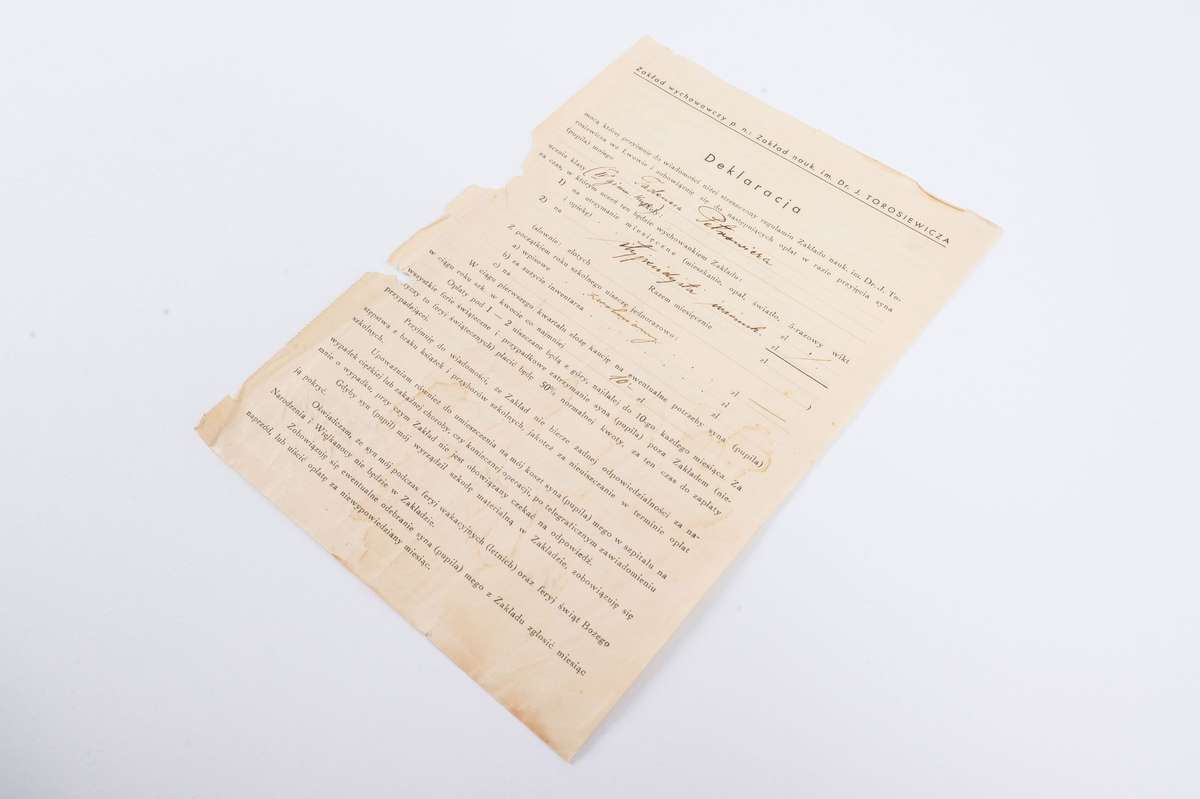 Zakład wychowawczy p. n.: Zakład nauk. im. Dr. J. TOROSIEWICZA
Deklaracja
mocą której przyjmuję do wiadomości niżej streszczony regulamin Zakładu nauk. im. Dr. J. To-
rosiewicza we Lwowie i zobowiązuję się do następujących opłat w razie przyjęcia syna
(pupila) mojego
ucznia klasy
na czas, w którym uczeń ten będzie wychowankiem Zakładu:
1) na utrzymanie miesięczne (mieszkanie, opał, światło, 5-razowy wikt
i opiekę) zł
2) na zł
Razem miesięcznie zł
(słownie: złotych stypendysta )
Z początkiem roku szkolnego uiszczę jednorazowo:
a) wpisowe zł
b) za zużycie inwentarza zł
c) na
W ciągu pierwszego kwartału złożę kaucję na ewentualne potrzeby syna (pupila)
w ciągu roku szk. w kwocie co najmniej 10.- zł
Opłaty pod 1—2 uiszczane będą z góry, najdalej do 10-go każdego miesiąca. Za
wszystkie ferie świąteczne i przypadkowe zatrzymanie syna (pupila) poza Zakładem (nie-
tyczy to feryj świątecznych) płacić będę 50% normalnej kwoty, za ten czas do zapłaty
przypadającej.
Przyjmuję do wiadomości, że Zakład nie bierze żadnej odpowiedzialności za na-
stępstwa z braku książek i przyborów szkolnych, jakoteż za nieuiszczanie w terminie opłat
szkolnych.
Upoważniam również do umieszczenia na mój koszt syna (pupila) mego w szpitalu na
wypadek ciężkiej lub zakaźnej choroby, czy koniecznej operacji, po telegraficznym zawiadomieniu
mnie o wypadku, przy czym Zakład nie jest obowiązany czekać na odpowiedź.
Gdyby syn (pupil) mój wyrządził szkodę materialną w Zakładzie, zobowiązuję się
ją pokryć.
Oświadczam, że syn mój podczas feryj wakacyjnych (letnich) oraz feryj świąt Bożego
Narodzenia i Wielkanocy nie będzie w Zakładzie.
Zobowiązuję się ewentualne odebranie syna (pupila) mego z Zakładu zgłosić miesiąc
naprzód, lub uiścić opłatę za niewypowiedziany miesiąc.